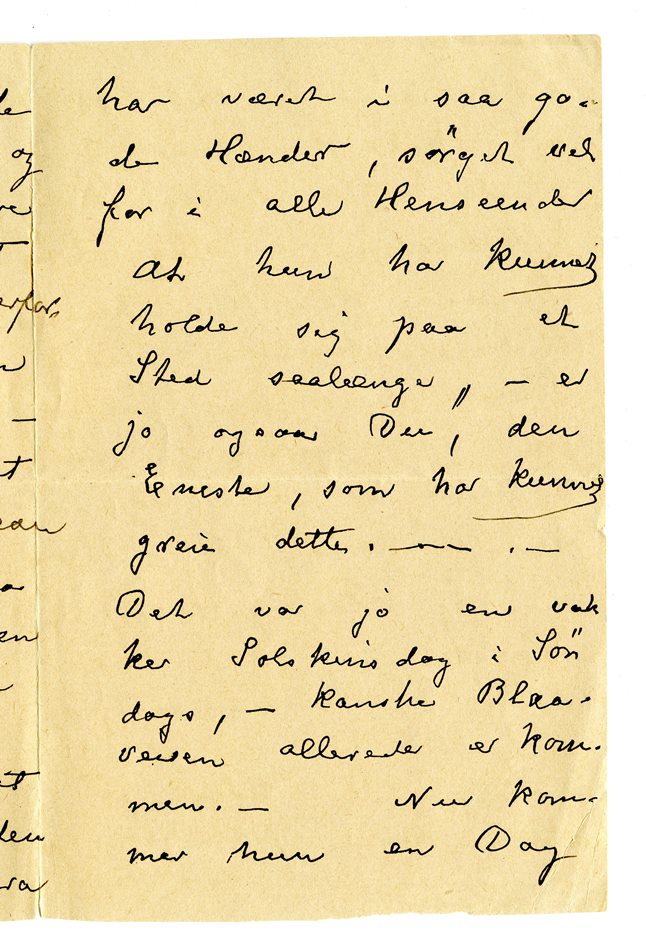 har været i saa go-
de Hænder, sörget vel
for i alle Henseender
At hun har kunnet
holde sig paa et
Sted saalænge, – er
jo ogsaa Du, den
Eneste, som har kunnet
greie dette. – – . –
Det var jo en vak
ker Solskinsdag i Sön
dags, – kanske Blaa-
veisen allerede er kom-
men. – Nu kom-
mer hun en Dag